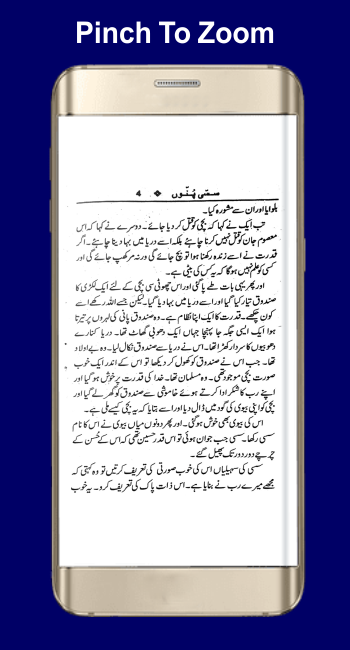 Pinch To Zoom
سسّی پُنّوں ❖ 4
بلوایا اور ان سے مشورہ کیا۔
تب ایک نے کہا کہ بچی کو قتل کر دیا جائے۔ دوسرے نے کہا کہ اس
معصوم جان کو قتل نہیں کرنا چاہئے بلکہ اسے دریا میں بہا دینا چاہئے۔ اگر
قدرت نے اسے زندہ رکھنا ہوا تو بچ جائے گی ورنہ مر کھپ جائے گی اور
کسی کو علم نہیں ہوگا کہ یہ کس کی بیٹی ہے۔
اور پھر یہی بات طے پا گئی اور اس چھوٹی سی بچی کے لئے ایک لکڑی کا
صندوق تیار کیا گیا اور اسے دریا میں بہا دیا گیا۔ لیکن جسے اللہ رکھے اسے
کون چکھے۔ قدرت کا ایک اپنا نظام ہے۔ وہ صندوق پانی کی لہروں پر تیرتا
ہوا ایک ایسی جگہ جا پہنچا جہاں ایک دھوبی گھاٹ تھا۔ دریا کنارے
دھوبیوں کا سردار کھڑا تھا۔ اس نے دریا سے صندوق نکال لیا۔ وہ بے اولاد
تھا۔ جب اس نے صندوق کو کھول کر دیکھا تو اس کے اندر ایک خوب
صورت بچی موجود تھی۔ وہ مسلمان تھا۔ خدا کی قدرت پر خوش ہو گیا اور
اپنے رب کا شکر ادا کرتے ہوئے خاموشی سے صندوق کو گھر لے گیا اور
بچی کو اپنی بیوی کی گود میں ڈال دیا اور اسے بتایا کہ یہ بچی کیسے ملی ہے۔
اس کی بیوی بھی خوش ہو گئی۔ اور پھر دونوں میاں بیوی نے اس کا نام
سسی رکھا۔ سسی جب جوان ہوئی تو اس قدر حسین تھی کہ اس کے حُسن کے
چرچے دور دور تک پھیل گئے۔
سسی کی سہیلیاں اس کی خوب صورتی کی تعریف کرتیں تو وہ کہتی کہ
مجھے میرے رب نے بنایا ہے۔ اس ذات پاک کی تعریف کرو۔ یہ خوب